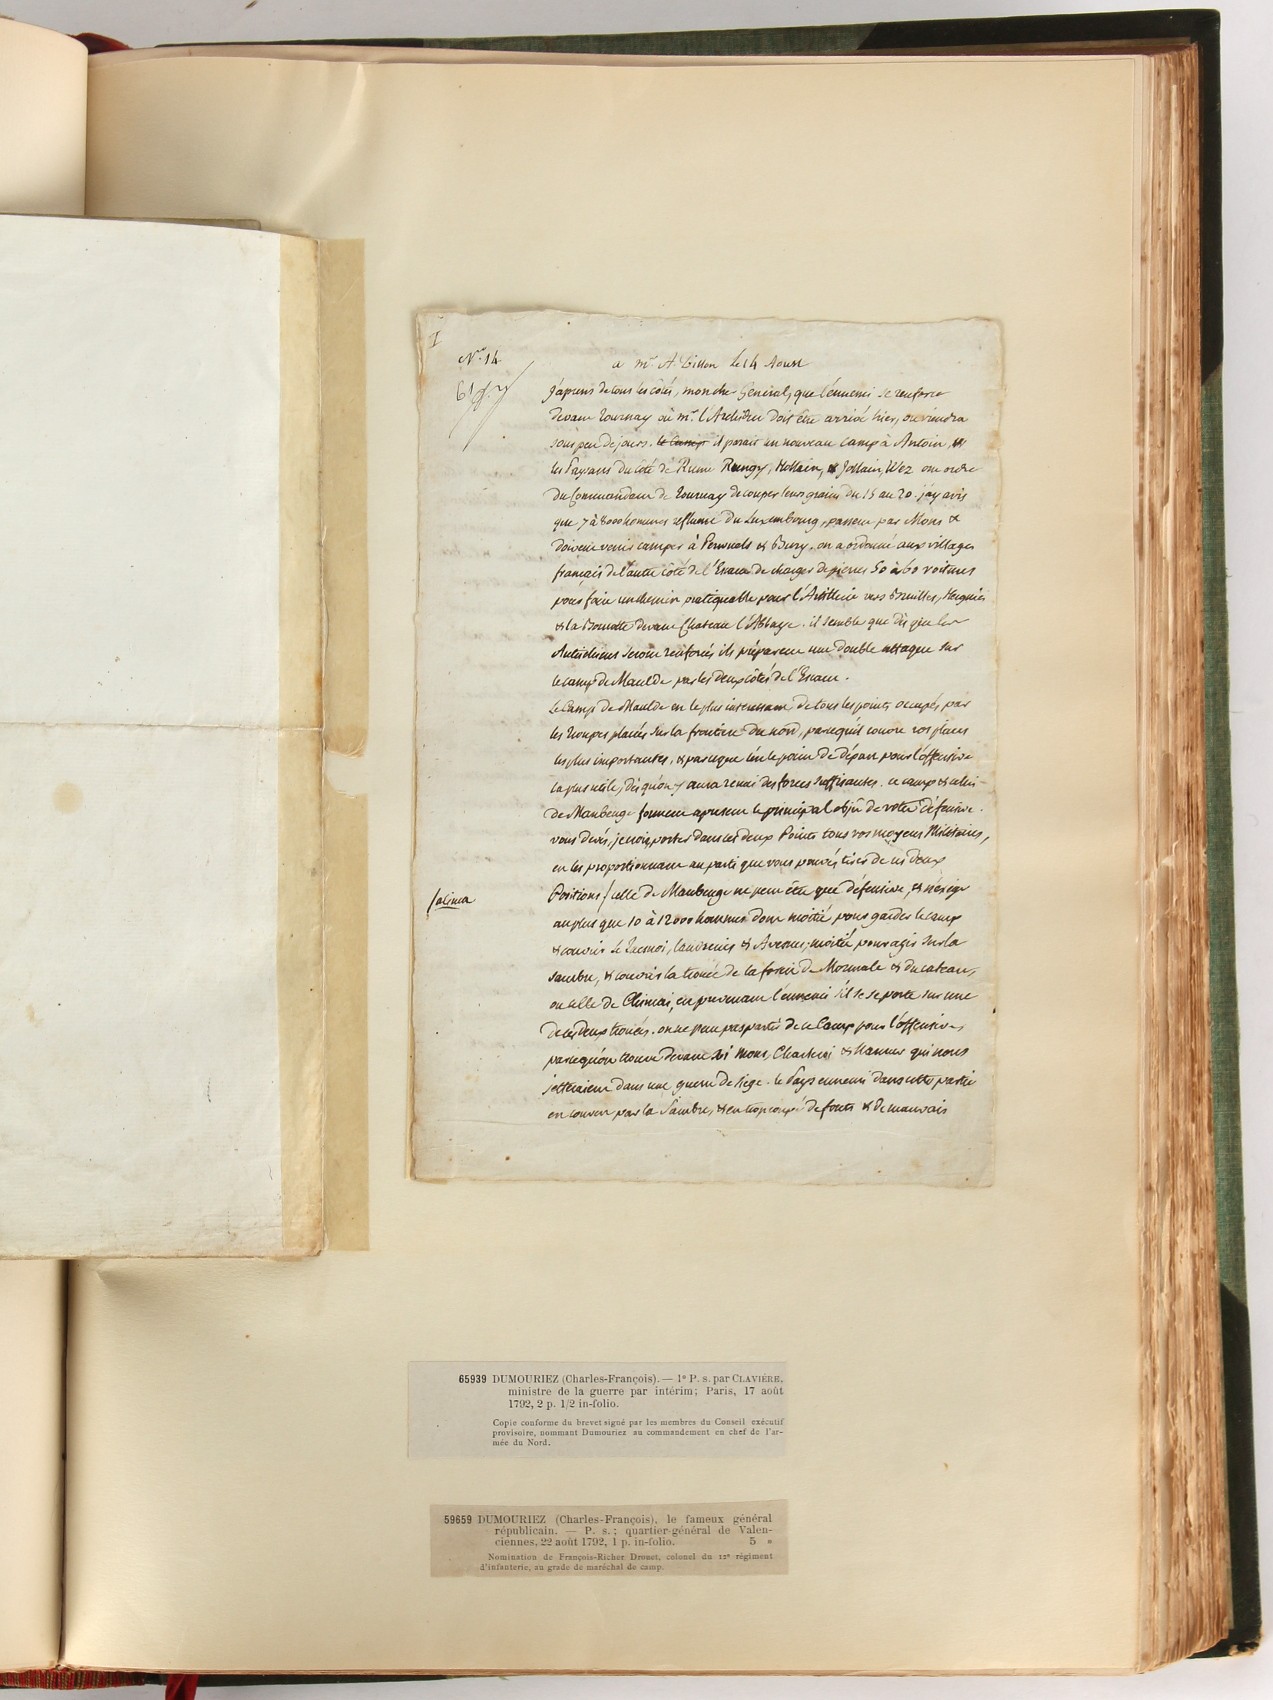 I
N.º 14
a mr. A. Dillon le 14 Aoust
J'aprens de tous les côtés, mon cher Général, que l'ennemi se renforce
devant Tournay où mr. l'Archiduc doit être arrivé hier, ou viendra
sous peu de jours. le Camp il parait un nouveau camp à Antoin,
les Paysans du côté de Rume Rongy, Hollain, & Jollain, Wez ont ordre
du Commandant de Tournay de couper leurs grains du 15 au 20. j'ay avis
que 7 à 8000 hommes du Luxembourg, passent par Mons &
doivent venir camper à Peruwels & Bury. on a ordonné aux villages
français de l'autre côté de l'Escaut de charger de pierres 50 à 60 voitures
pour faire un chemin pratiquable pour l'Artillerie vers Bruilles, Hergnies
& la devant Chateau l'Abbaye. il semble que dès que les
Autrichiens seront renforcés ils préparent une double attaque sur
le camp de Maulde par les deux côtés de l'Escaut.
Le Camp de Maulde est le plus interessant de tous les points occupés par
les troupes placées sur la frontière du nord, parcequ'il couvre vos places
les plus importantes, & parceque c'est le point de départ pour l'offensive
la plus utile, dès qu'on y aura réuni des forces suffisantes. ce camp & celui
de Maubeuge forment apresent le principal objet de votre défensive.
vous devés, je crois, porter dans ces deux Points tous vos moyens Militaires,
en les proportionnant au parti que vous pouvés tirer de ces deux
Positions / celle de Maubeuge ne peut être que défensive, & n'exige
/alinea
au plus que 10 à 12000 hommes dont moitié pour garder le camp
& couvrir le Quesnoi, Landrecies & Avesnes; moitié pour agir sur la
Sambre, & couvrir la trouée de la forêt de Mormale & du Cateau,
ou celle de Chimai, en prevenant l'ennemi s'il se porte sur une
de ces deux trouées. on ne peut pas partir de ce Camp pour l'offensive,
parcequ'on trouve devant soi Mons, Charleroi & Namur qui nous
jetteraient dans une guerre de siège. le Pays ennemi dans cette partie
est couvert par la Sambre, & est trop coupé de forêts & de mauvais
65939 DUMOURIEZ (Charles-François). — 1º P. s. par CLAVIÈRE,
ministre de la guerre par intérim; Paris, 17 août
1792, 2 p. 1/2 in-folio.
Copie conforme du brevet signé par les membres du Conseil exécutif
provisoire, nommant Dumouriez au commandement en chef de l'ar-
mée du Nord.
59659 DUMOURIEZ (Charles-François), le fameux général
républicain. — P. s.; quartier-général de Valen-
ciennes, 22 août 1792, 1 p. in-folio. 5 »
Nomination de François-Richer Drouet, colonel du 12e régiment
d'infanterie, au grade de maréchal de camp.